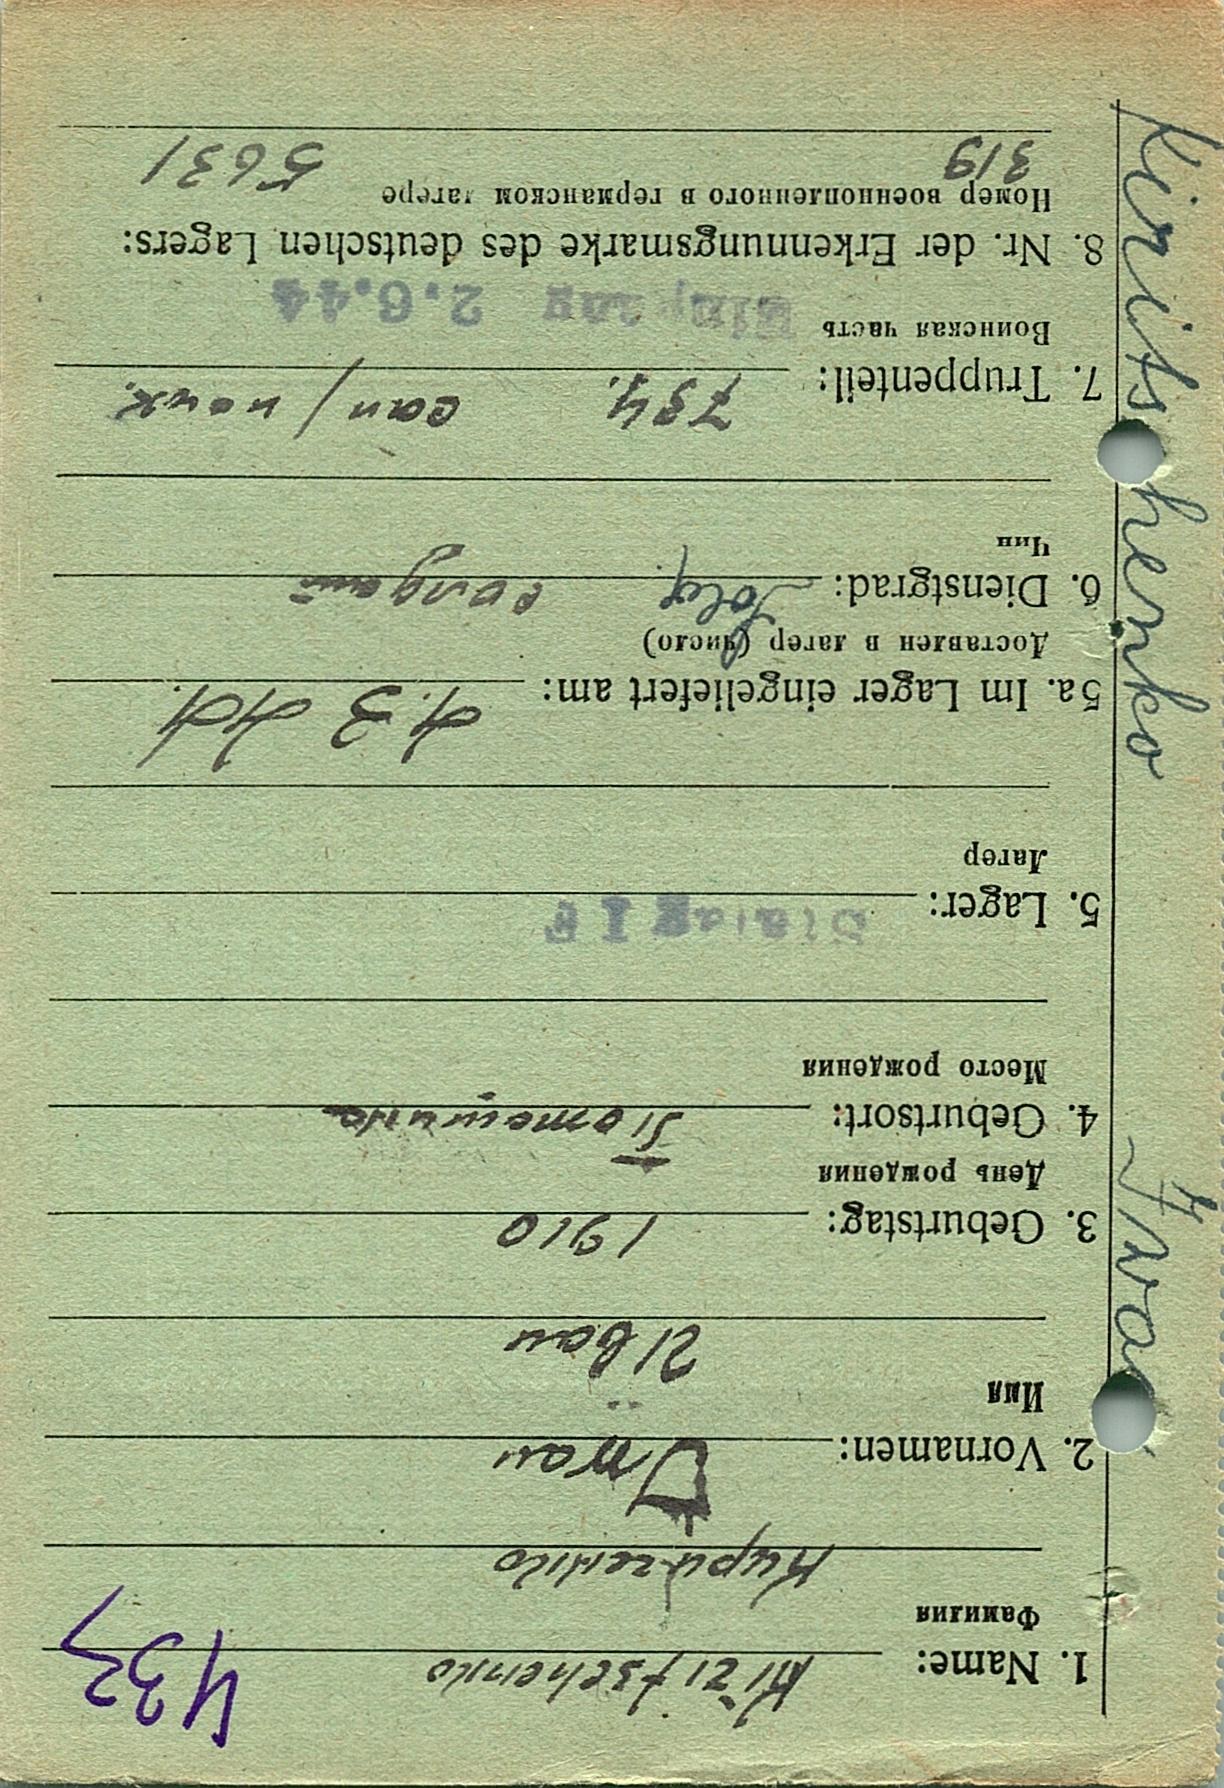 433
1. Name: Kiritschenko
Фамилия
Кириченко
2. Vornamen: Iwan
Имя
Иван
3. Geburtstag: 1910
День рождения
4. Geburtsort:
Место рождения
5. Lager: Stalag I F
Лагерь
5a. Im Lager eingeliefert am: 1.3 44.
Доставлен в лагерь (число)
6. Dienstgrad: Sold. солдат
Чин
7. Truppenteil: 794. сап/
Воинская часть
Eingang 2.6.44
8. Nr. der Erkennungsmarke des deutschen Lagers:
Номер военнопленного в германском лагере
319 5631
Kiritschenko Iwan